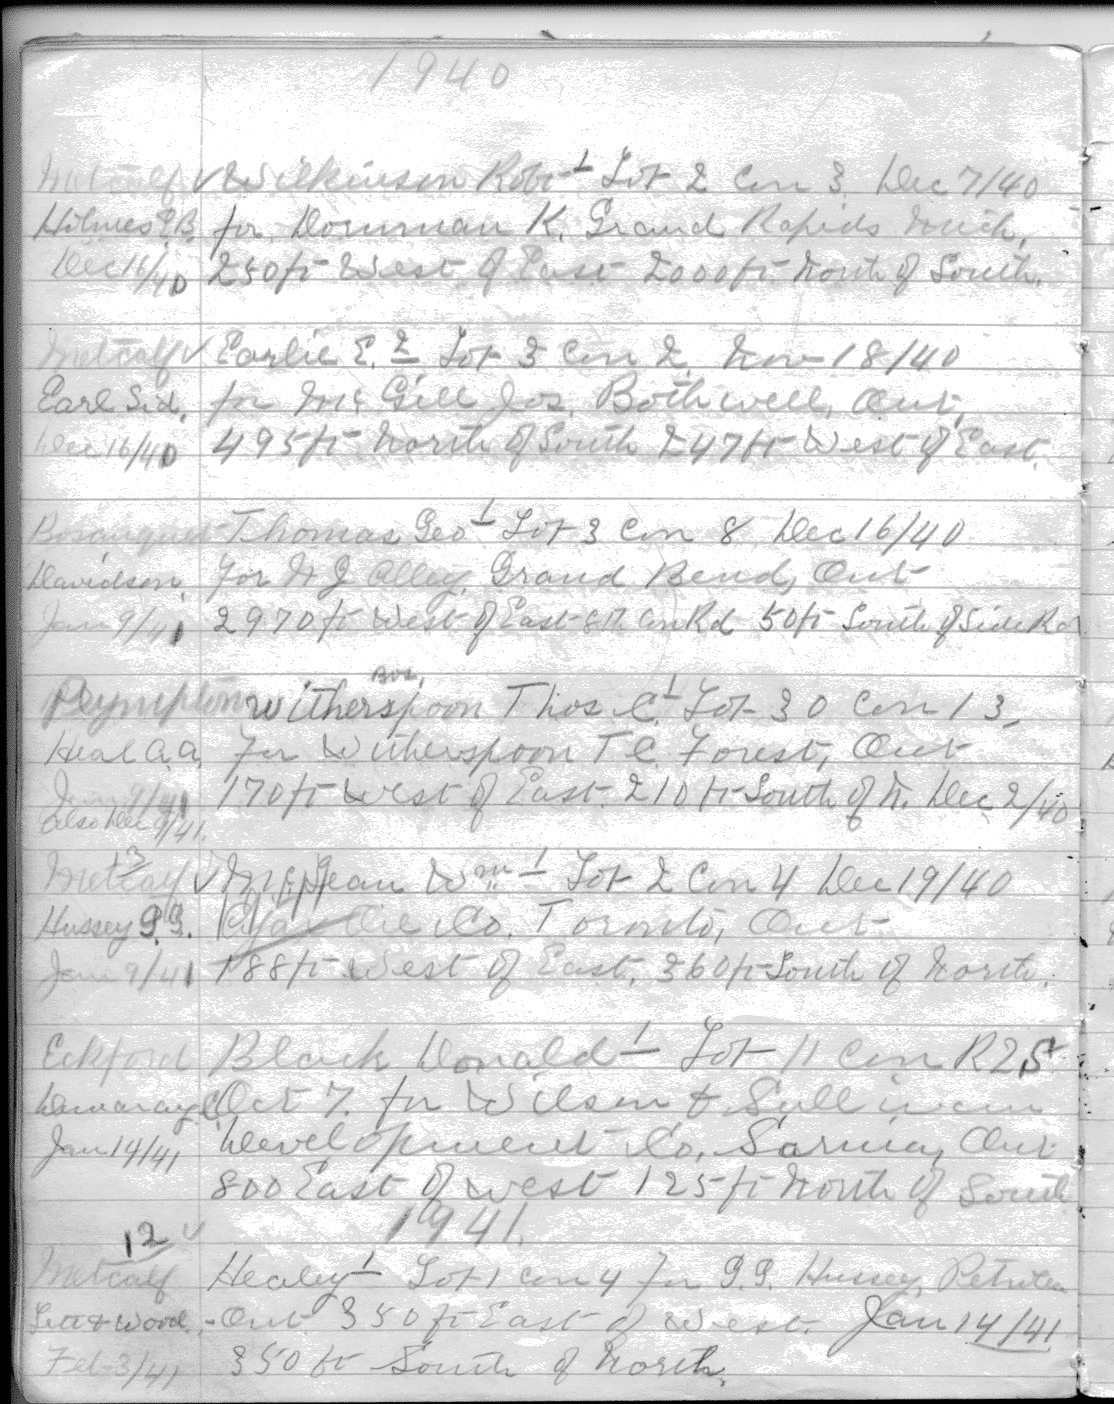 1940
Metcalf ✓ Wilkinson Robt 1 Lot 2 Con 3. Dec 7/40
Holmes P.B. for Dornman K. Grand Rapids Mich.
Dec 16/40 250ft West of East 2000ft North of South.
Metcalf ✓ Earlie E. 2 Lot 3 Con 2. Nov 18/40
Earl Sid. for McGill Jos. Bothwell, Ont.
Dec 16/40 495ft North of South 247ft West of East.
Bosanquet Thomas Geo 1 Lot 3 Con 8 Dec 16/40
Davidson. For N J Alley, Grand Bend, Ont
Jan 9/41 2970ft West of East 8th Con Rd 50ft South of Side Rd
Bos.
Plympton Witherspoon Thos C. 1 Lot 30 Con 13.
Heal A.A. For Witherspoon T C. Forest, Ont
Jan 9/41 170ft West of East. 210ft South of N. Dec 2/40
also Dec 9/41.
13
Metcalf ✓ McLean Wm 1 Lot 2 Con 4 Dec 19/40
Hussey G.G. Oil Co. Toronto, Ont
Jan 9/41 188ft West of East. 360ft South of North.
Eckford Black Donald 1 Lot 11 Con R2S
Demaray C. Oct 7. for Wilson & Sullivan
Jan 14/41 Development Co. Sarnia, Ont
800 East of West 125ft North of South
1941.
12 ✓
Metcalf Healey 1 Lot 1 Con 4 for G.G. Hussey, Petrolea
Lett & Wood. - Ont 350ft East of West. Jan 14/41
Feb 3/41 350ft South of North.